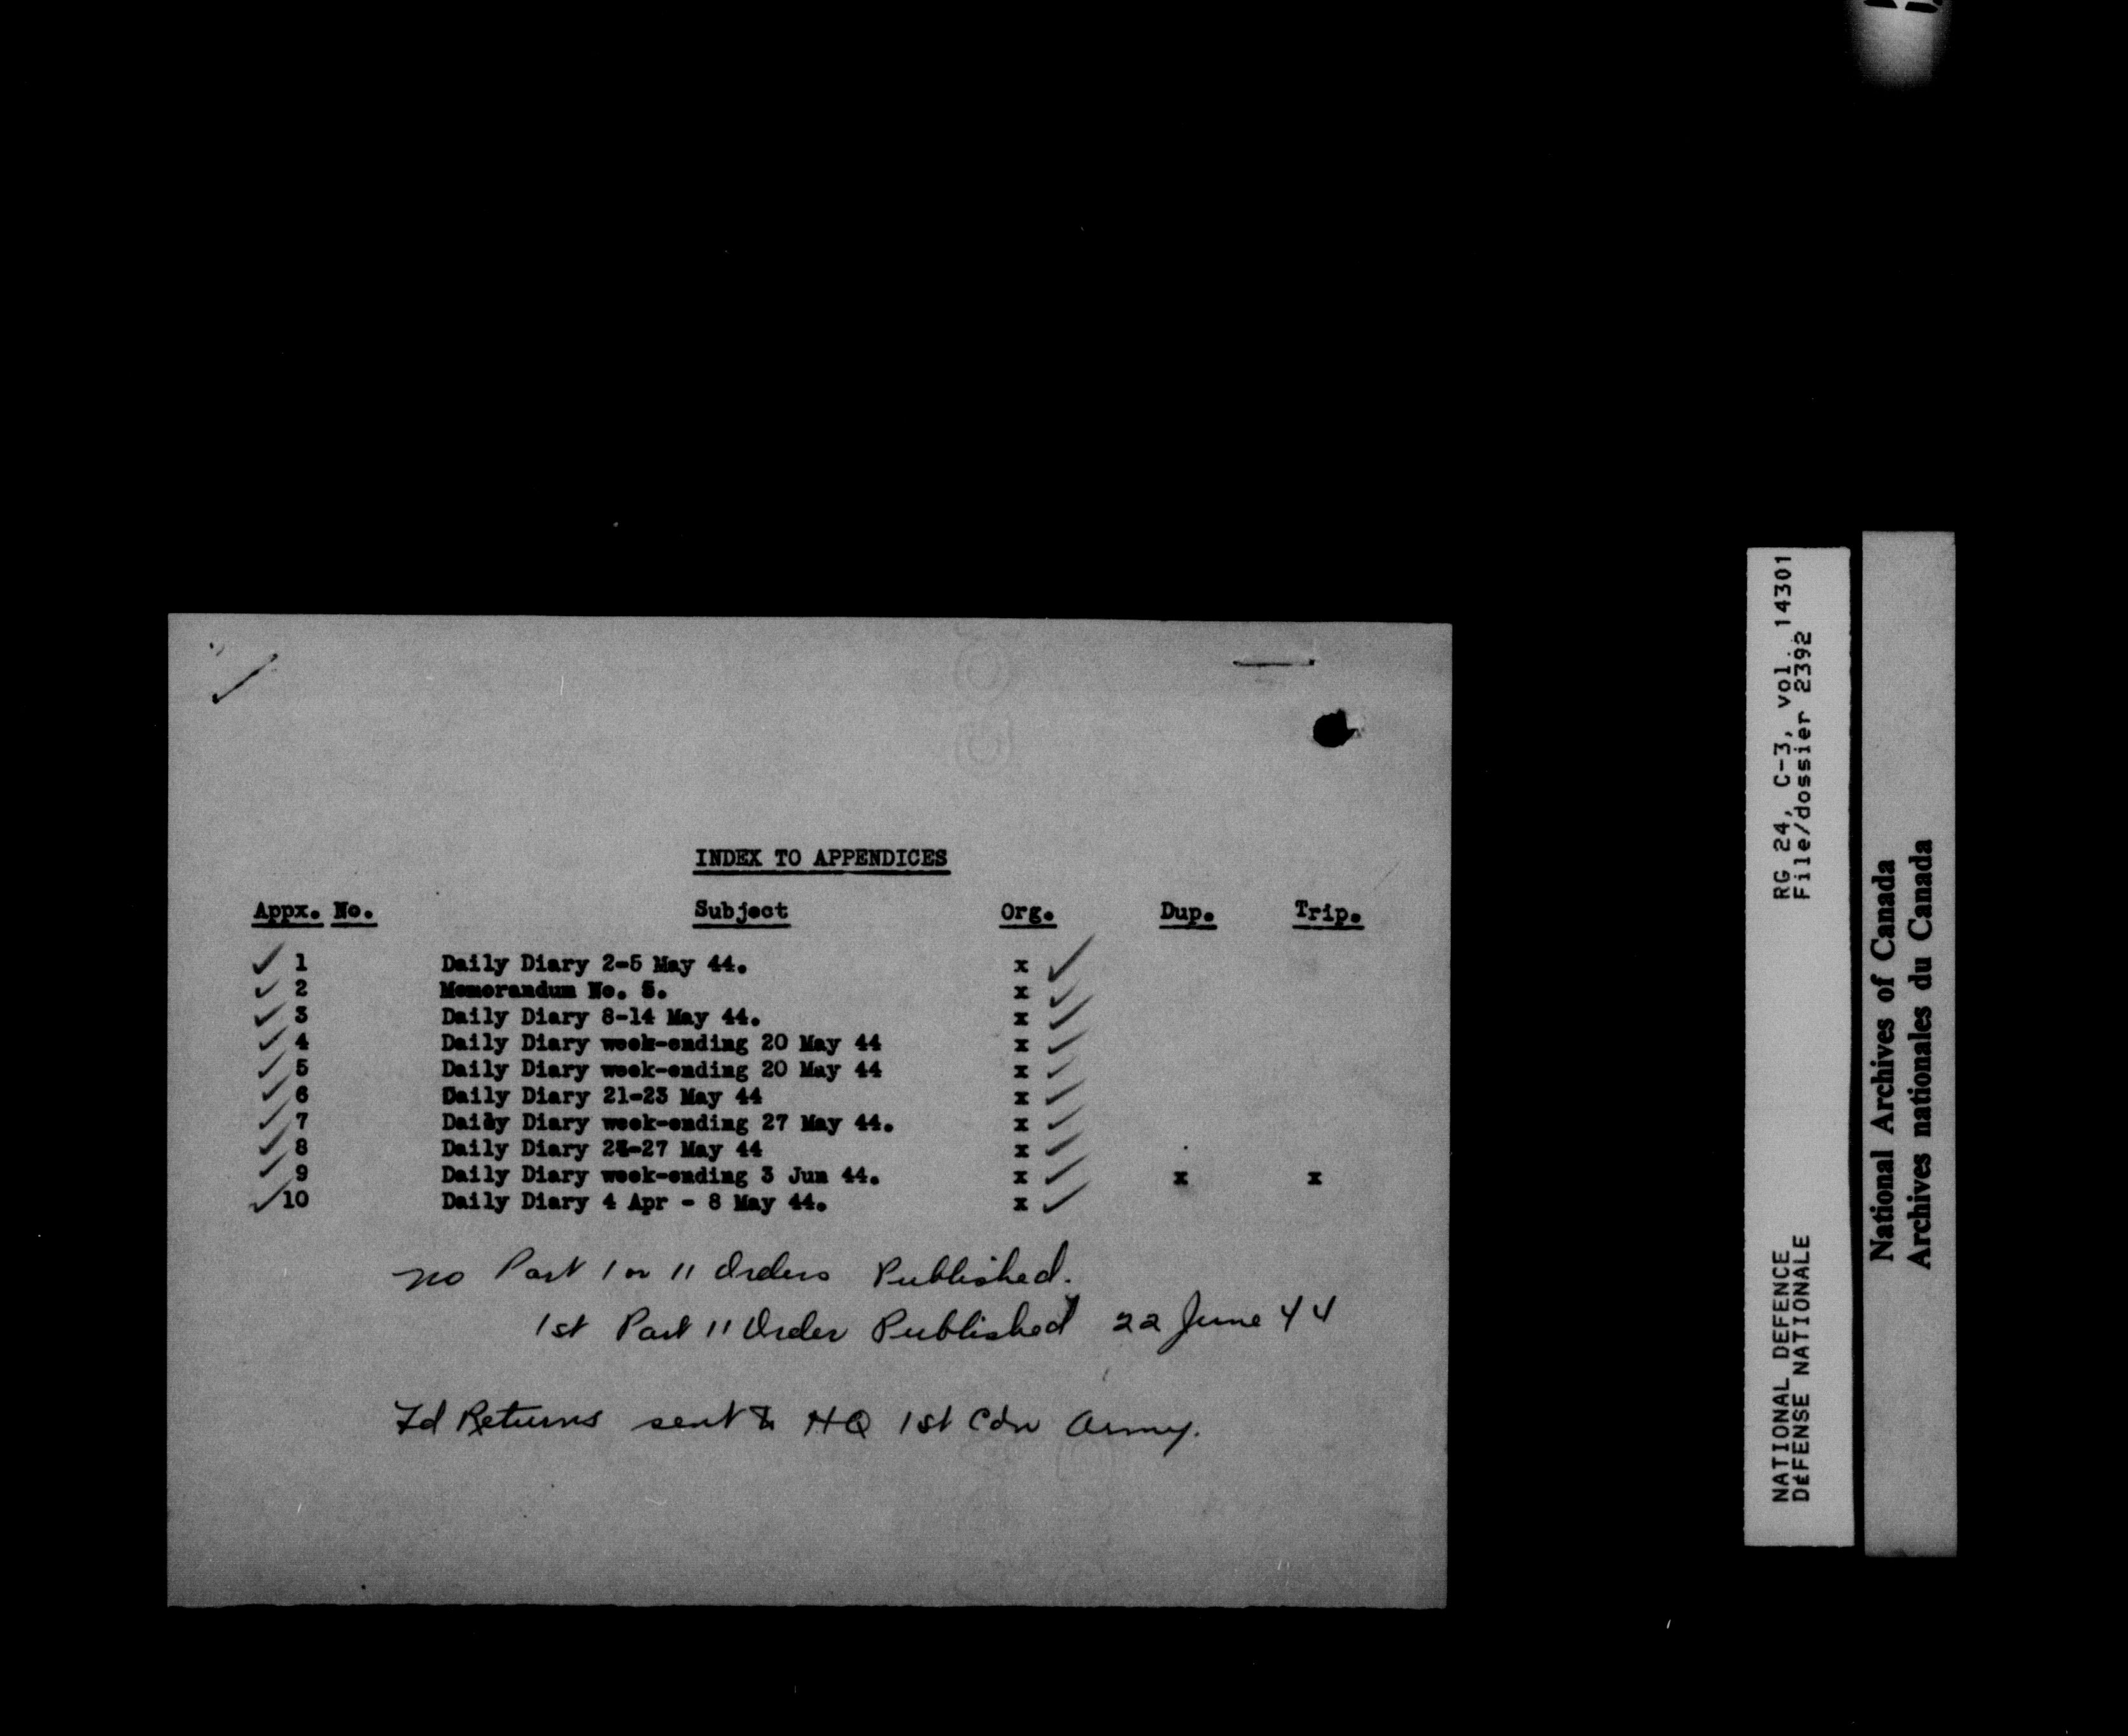 INDEX TO APPENDICES
Appx. No. Subject Org. Dup. Trip.
✓ 1 Daily Diary 2-5 May 44. x ✓
✓ 2 Memorandum No. 5. x ✓
✓ 3 Daily Diary 8-14 May 44. x ✓
✓ 4 Daily Diary week-ending 20 May 44 x ✓
✓ 5 Daily Diary week-ending 20 May 44 x ✓
✓ 6 Daily Diary 21-23 May 44 x ✓
✓ 7 Daily Diary week-ending 27 May 44. x ✓
✓ 8 Daily Diary 24-27 May 44 x ✓
✓ 9 Daily Diary week-ending 3 Jun 44. x ✓ x x
✓ 10 Daily Diary 4 Apr - 8 May 44. x ✓
no Part 1 or 11 Orders Published.
1st Part 11 Order Published 22 June 44
Fd Returns sent to HQ 1st Cdn Army.
NATIONAL DEFENCE RG 24, C-3, vol. 14301
DÉFENSE NATIONALE File/dossier 2392
National Archives of Canada
Archives nationales du Canada